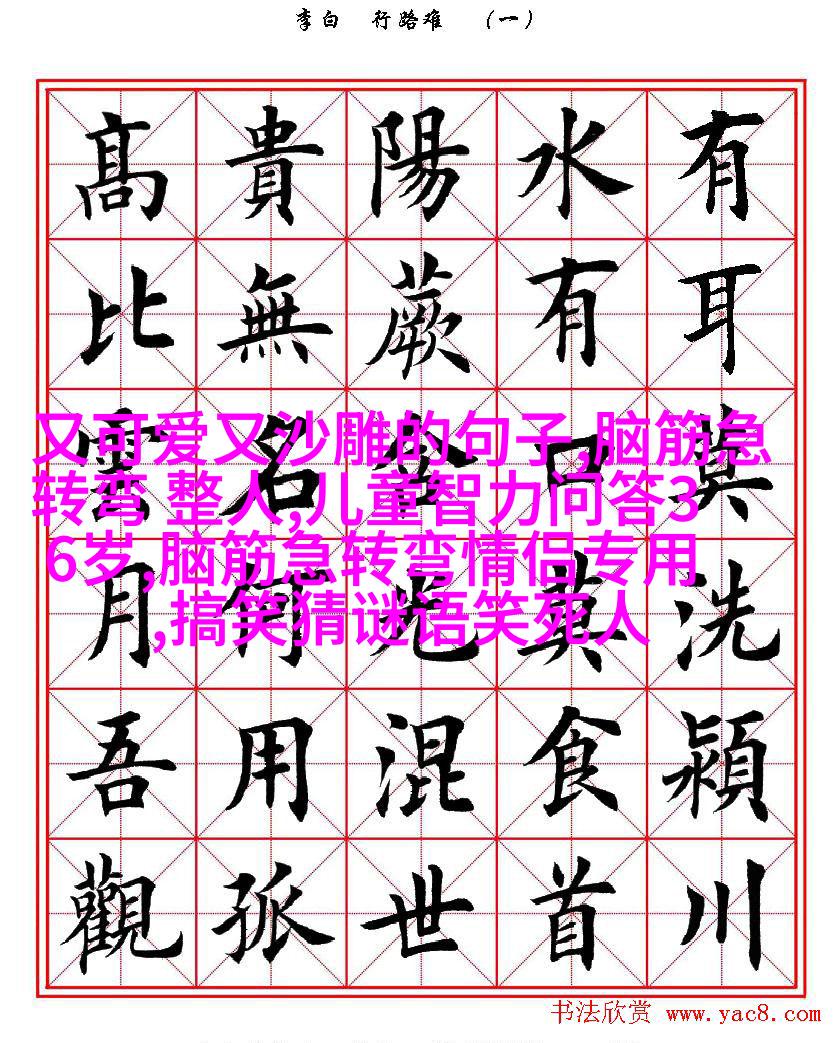 李白 行路难 （一）
有耳莫洗潁川
水有口莫食首
陽蕨含光混世
貴無名何用孤
髙比雲月吾觀
又可爱又沙雕的句子,脑筋急
转弯 整人,儿童智力问答3
6岁,脑筋急转弯情侣专用
,搞笑猜谜语笑死人
书法欣赏 www.yac8.com